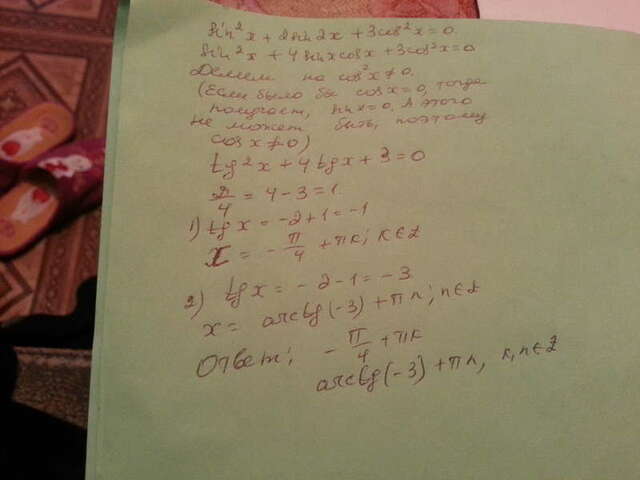 sin²x + 2sin2x + 3cos²x = 0.
sin²x + 4sinxcosx + 3cos²x = 0
Делим на cos²x ≠ 0.
(Если было бы cosx = 0, тогда
получаем, sinx = 0. А этого
не может быть, поэтому
cosx ≠ 0)
tg²x + 4tgx + 3 = 0
D/4 = 4 - 3 = 1.
1) tgx = -2 + 1 = -1
x = -π/4 + πk; k ∈ Z
2) tgx = -2 - 1 = -3
x = arctg(-3) + πn; n ∈ Z
Ответ: -π/4 + πk
arctg(-3) + πn, k, n ∈ Z